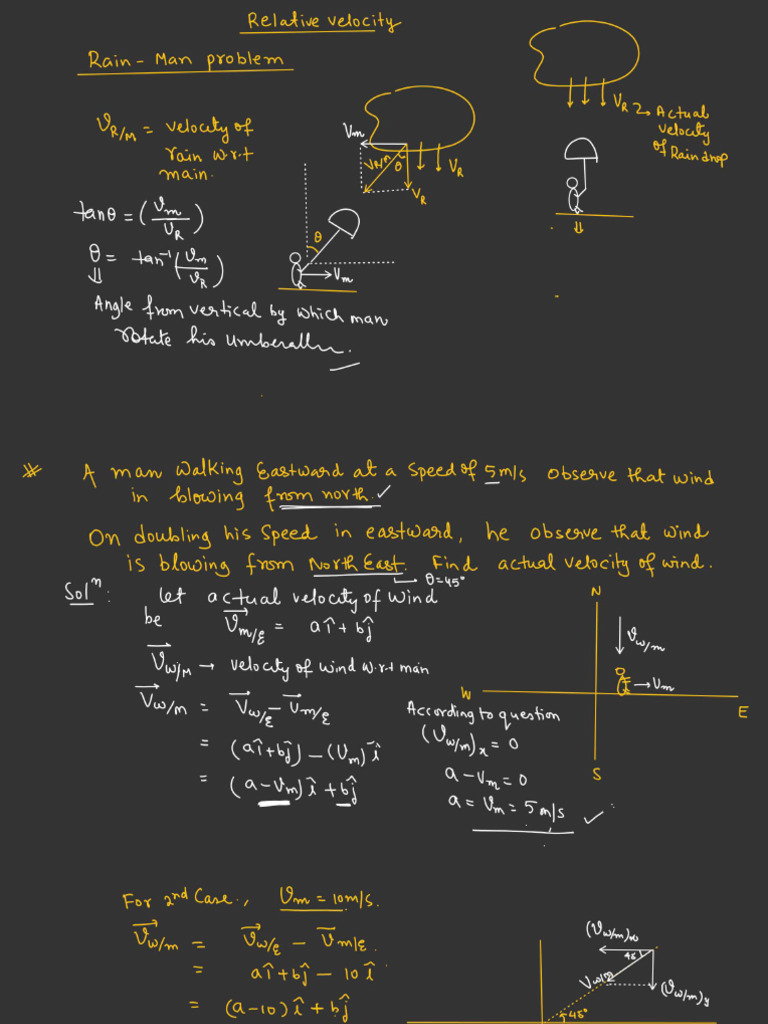 Relative velocity
Rain - Man problem
V_R → Actual
velocity
of Raindrop
V_R/M = velocity of
rain w.r.t
main.
V_m
V_R/m
θ
V_R
V_R
tanθ = (V_m/V_R)
θ = tan⁻¹(V_m/V_R)
⇓
θ
V_m
⇓
Angle from vertical by which man
rotate his umberalln.
* A man walking Eastward at a speed of 5m/s observe that wind
in blowing from north. ✓
On doubling his speed in eastward, he observe that wind
is blowing from North East. Find actual velocity of wind.
→ θ=45°
Solⁿ: let actual velocity of wind
be V_m/ε = aî + bĵ
V_w/M → velocity of wind w.r.t man
V_w/m = V_w/ε - V_m/ε
= (aî + bĵ) - (V_m) î
= (a - V_m) î + bĵ
N
V_w/m
→ V_m
W
E
S
According to question
(V_w/m)_x = 0
a - V_m = 0
a = V_m = 5 m/s ✓
For 2nd Case., V_m = 10m/s.
V_w/m = V_w/ε - V_m/ε.
= aî + bĵ - 10 î
= (a-10) î + bĵ
(V_w/m)_x
45
(V_w/m)_y
45°